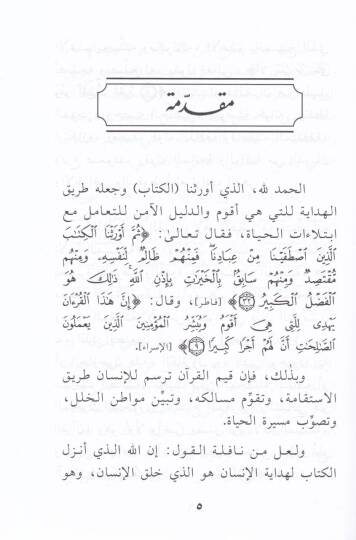 مقدّمة
الحمد لله، الذي أورثنا (الكتاب) وجعله طريق
الهداية للتي هي أقوم والدليل الآمن للتعامل مع
ابتلاءات الحياة، فقال تعالىٰ: ﴿ثُمَّ أَوْرَثْنَا ٱلْكِتَٰبَ
ٱلَّذِينَ ٱصْطَفَيْنَا مِنْ عِبَادِنَا فَمِنْهُمْ ظَالِمٌ لِّنَفْسِهِۦ وَمِنْهُم
مُّقْتَصِدٌ وَمِنْهُمْ سَابِقٌۢ بِٱلْخَيْرَٰتِ بِإِذْنِ ٱللَّهِ ذَٰلِكَ هُوَ
ٱلْفَضْلُ ٱلْكَبِيرُ ۝٣٢﴾ [فاطر]، وقال: ﴿إِنَّ هَٰذَا ٱلْقُرْءَانَ
يَهْدِى لِلَّتِى هِىَ أَقْوَمُ وَيُبَشِّرُ ٱلْمُؤْمِنِينَ ٱلَّذِينَ يَعْمَلُونَ
ٱلصَّٰلِحَٰتِ أَنَّ لَهُمْ أَجْرًا كَبِيرًا ۝٩﴾ [الإسراء].
وبذٰلك، فإن قيم القرآن ترسم للإنسان طريق
الاستقامة، وتقوّم مسالكه، وتبيّن مواطن الخلل،
وتصوّب مسيرة الحياة.
ولعل من نافلة القول: إن الله الذي أنزل
الكتاب لهداية الإنسان هو الذي خلق الإنسان، وهو
٥